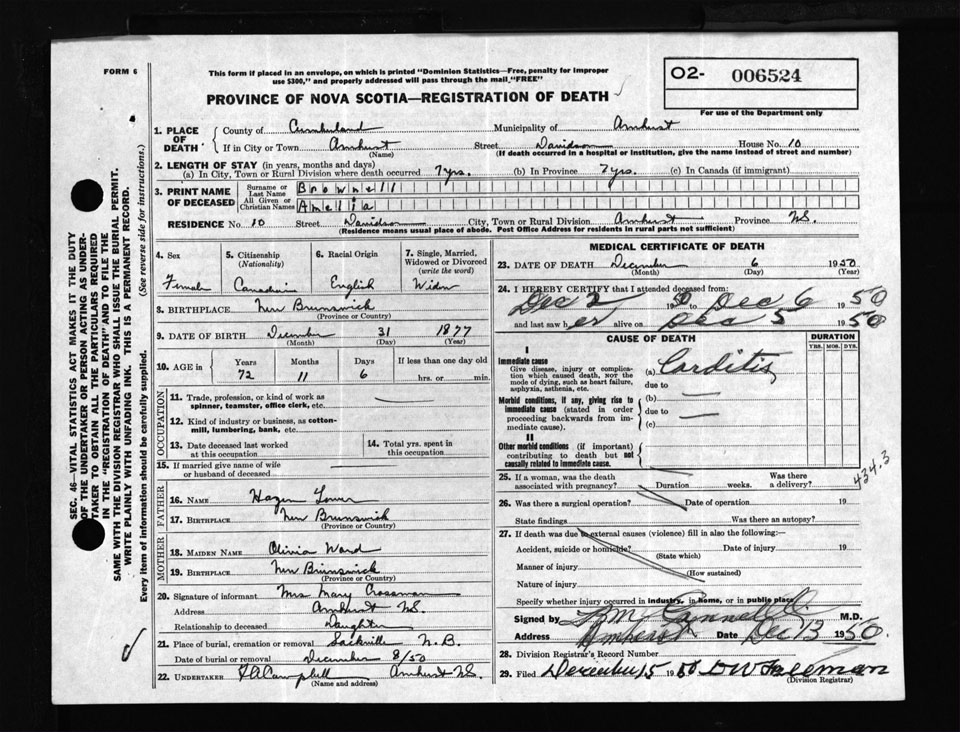 FORM 6
This form if placed in an envelope, on which is printed "Dominion Statistics—Free, penalty for improper
use $300," and properly addressed will pass through the mail "FREE"
PROVINCE OF NOVA SCOTIA—REGISTRATION OF DEATH
O2- 006524
For use of the Department only
SEC. 46—VITAL STATISTICS ACT MAKES IT THE DUTY
OF THE UNDERTAKER OR PERSON ACTING AS UNDER-
TAKER TO OBTAIN ALL THE PARTICULARS REQUIRED
IN THE "REGISTRATION OF DEATH" AND TO FILE THE
SAME WITH THE DIVISION REGISTRAR WHO SHALL ISSUE THE BURIAL PERMIT.
WRITE PLAINLY WITH UNFADING INK. THIS IS A PERMANENT RECORD.
Every item of information should be carefully supplied. (See reverse side for instructions.)
1. PLACE OF DEATH County of Cumberland Municipality of Amherst
If in City or Town Amherst Street Davidson House No. 10
(Name) (If death occurred in a hospital or institution, give the name instead of street and number)
2. LENGTH OF STAY (in years, months and days)
(a) In City, Town or Rural Division where death occurred 7 yrs. (b) In Province 7 yrs. (c) In Canada (if immigrant)
3. PRINT NAME OF DECEASED Surname or Last Name Brownell
All Given or Christian Names Amelia
RESIDENCE No 10 Street Davidson City, Town or Rural Division Amherst Province N.S.
(Residence means usual place of abode. Post Office Address for residents in rural parts not sufficient)
4. Sex Female
5. Citizenship (Nationality) Canadian
6. Racial Origin English
7. Single, Married, Widowed or Divorced (write the word) Widow
8. BIRTHPLACE New Brunswick
(Province or Country)
9. DATE OF BIRTH December 31 1877
(Month) (Day) (Year)
10. AGE in Years 72 Months 11 Days 6 If less than one day old hrs. or min.
OCCUPATION
11. Trade, profession, or kind of work as spinner, teamster, office clerk, etc.
12. Kind of industry or business, as cotton-mill, lumbering, bank, etc.
13. Date deceased last worked at this occupation
14. Total yrs. spent in this occupation
15. If married give name of wife or husband of deceased
FATHER
16. NAME Hazen Tower
17. BIRTHPLACE New Brunswick
(Province or Country)
MOTHER
18. MAIDEN NAME Olivia Ward
19. BIRTHPLACE New Brunswick
(Province or Country)
20. Signature of informant Mrs Mary Crossman
Address Amherst N.S.
Relationship to deceased Daughter
21. Place of burial, cremation or removal Sackville N.B.
Date of burial or removal December 8/50
22. UNDERTAKER Campbell Amherst N.S.
(Name and address)
MEDICAL CERTIFICATE OF DEATH
23. DATE OF DEATH December 6 1950
(Month) (Day) (Year)
24. I HEREBY CERTIFY that I attended deceased from:
Dec 2 50 Dec 6 1950
and last saw her alive on Dec 5 1950
CAUSE OF DEATH DURATION
YRS. MOS. DYS.
I
Immediate cause
Give disease, injury or complication which caused death, NOT the mode of dying, such as heart failure, asphyxia, asthenia, etc.
(a) Carditis
due to
Morbid conditions, if any, giving rise to immediate cause (stated in order proceeding backwards from immediate cause).
(b)
due to
(c)
II
Other morbid conditions (if important) contributing to death but not causally related to immediate cause.
434.3
25. If a woman, was the death associated with pregnancy? Duration weeks. Was there a delivery?
26. Was there a surgical operation? Date of operation 19
State findings Was there an autopsy?
27. If death was due to external causes (violence) fill in also the following:—
Accident, suicide or homicide? Date of injury 19
(State which)
Manner of injury
(How sustained)
Nature of injury
Specify whether injury occurred in industry, in home, or in public place
Signed by M.D.
Address Amherst Date Dec 13 1950.
28. Division Registrar's Record Number
29. Filed December 15 1950 D W Freeman
(Division Registrar)